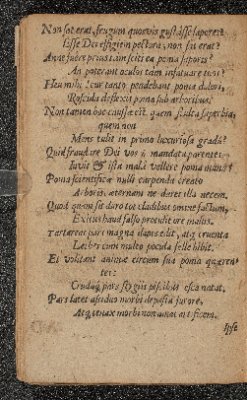 Non sat erat, frugum quoruis gustasse saporem?
Esse Dei effigiem pectore, non sat erat?
An ne fuere prius tam sciti ea poma saporis?
An poterant oculos tam infatuare tuos?
Heu mihi! cur tanto pendebant poma dolori,
Roscida deflexit poma sub arboribus.
Non tamen hoc caussa est, quem stulta superbia, quem non
Mens tulit in primo luxuriosa gradu?
Quid fraudare Dei vos mandata
ista mali vellere poma manu?
Poma scientificæ nulli carpenda creato
Arboris, æternam ne daret illa necem.
Quid quem
Exitus haud falso procubuere malis.
Tartareæ pars magna dapes edit, atq; cruenta
Lethes cum multo pocula felle bibit.
Et volitant animæ circum sua poma querentes:
Crudaq; pars stygiis piscibus esca natat.
Pars latet assiduo morbi depasta furore,
Atq; tenax morbi non amat artificem.
Ipse